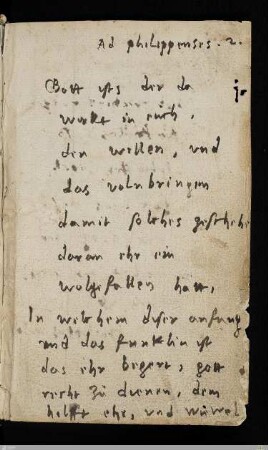 Ad philippenses . 2.
Gott ists der do
wurkt in euch,
den willen, und
das volnbringen
damit solches geschehe
daran ehr ein
wolgefallen hatt,
In welchem diser anfang
und das funklin ist
das ehr begert, gott
recht zů dienen, dem
hilfft ehr, und